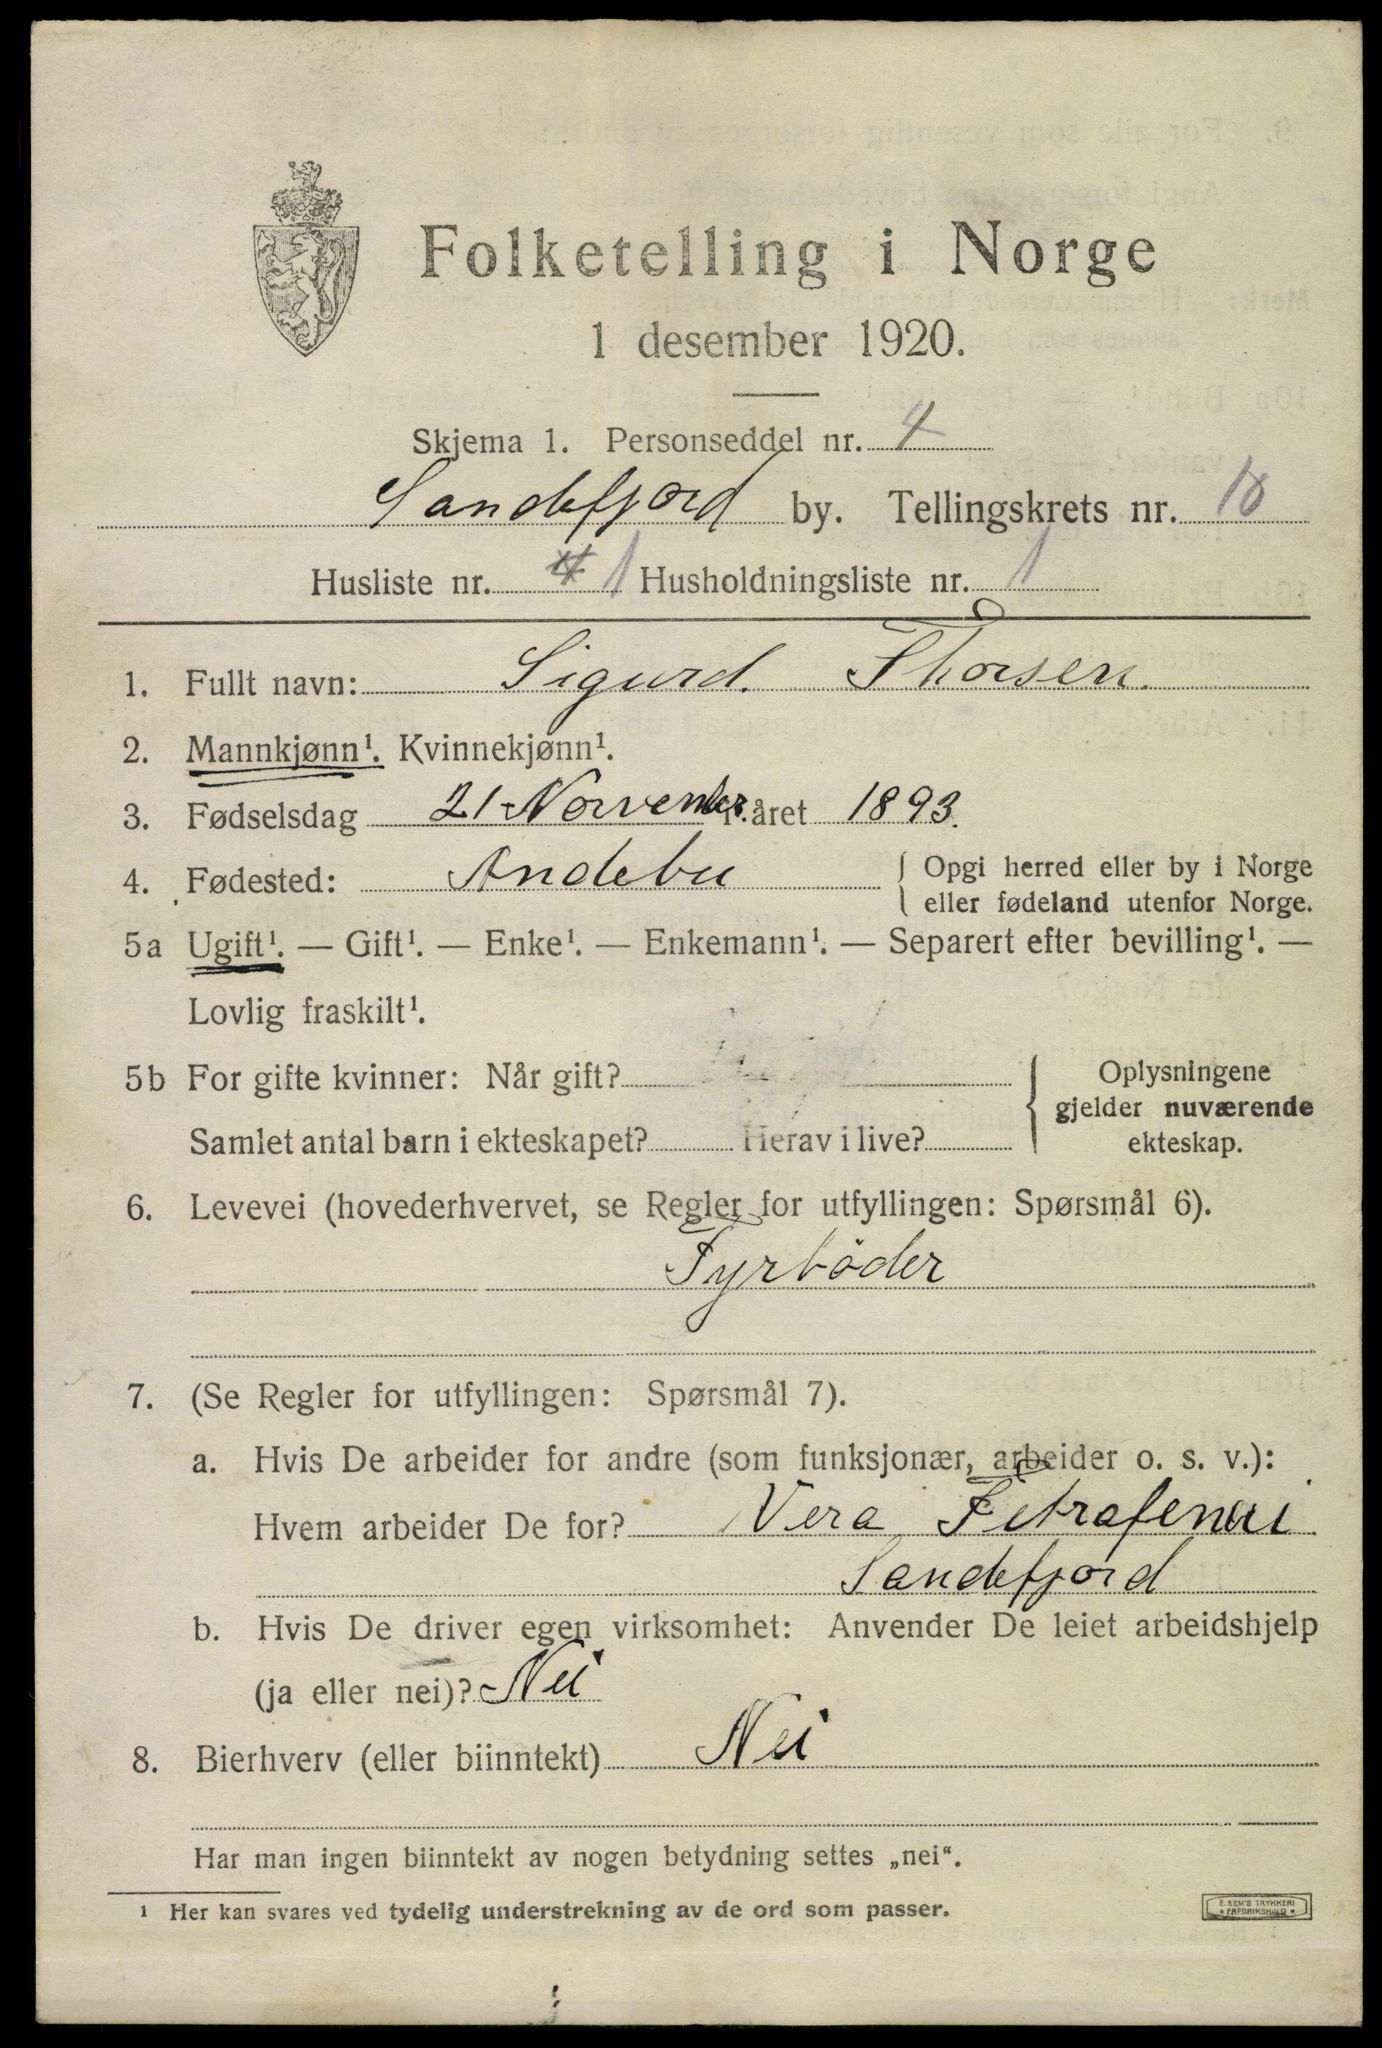 Folketelling i Norge
1 desember 1920.
Skjema 1. Personseddel nr. 4
Sandefjord by. Tellingskrets nr. 10
Husliste nr. 1 Husholdningsliste nr. 1
1. Fullt navn: Sigurd. Thorsen.
2. Mannkjønn¹. Kvinnekjønn¹.
3. Fødselsdag 21 November i året 1893.
4. Fødested: Andebu { Opgi herred eller by i Norge
eller fødeland utenfor Norge.
5a Ugift¹. — Gift¹. — Enke¹. — Enkemann¹. — Separert efter bevilling¹. —
Lovlig fraskilt¹.
5b For gifte kvinner: Når gift? { Oplysningene
gjelder nuværende
Samlet antal barn i ekteskapet? Herav i live? ekteskap.
6. Levevei (hovederhvervet, se Regler for utfyllingen: Spørsmål 6).
Fyrböder
7. (Se Regler for utfyllingen: Spørsmål 7).
a. Hvis De arbeider for andre (som funksjonær, arbeider o. s. v.):
Hvem arbeider De for? Vera
Sandefjord
b. Hvis De driver egen virksomhet: Anvender De leiet arbeidshjelp
(ja eller nei)? Nei
8. Bierhverv (eller biinntekt) Nei
Har man ingen biinntekt av nogen betydning settes „nei“.
¹ Her kan svares ved tydelig understrekning av de ord som passer.
E. SEM'S TRYKKERI
FREDRIKSHALD